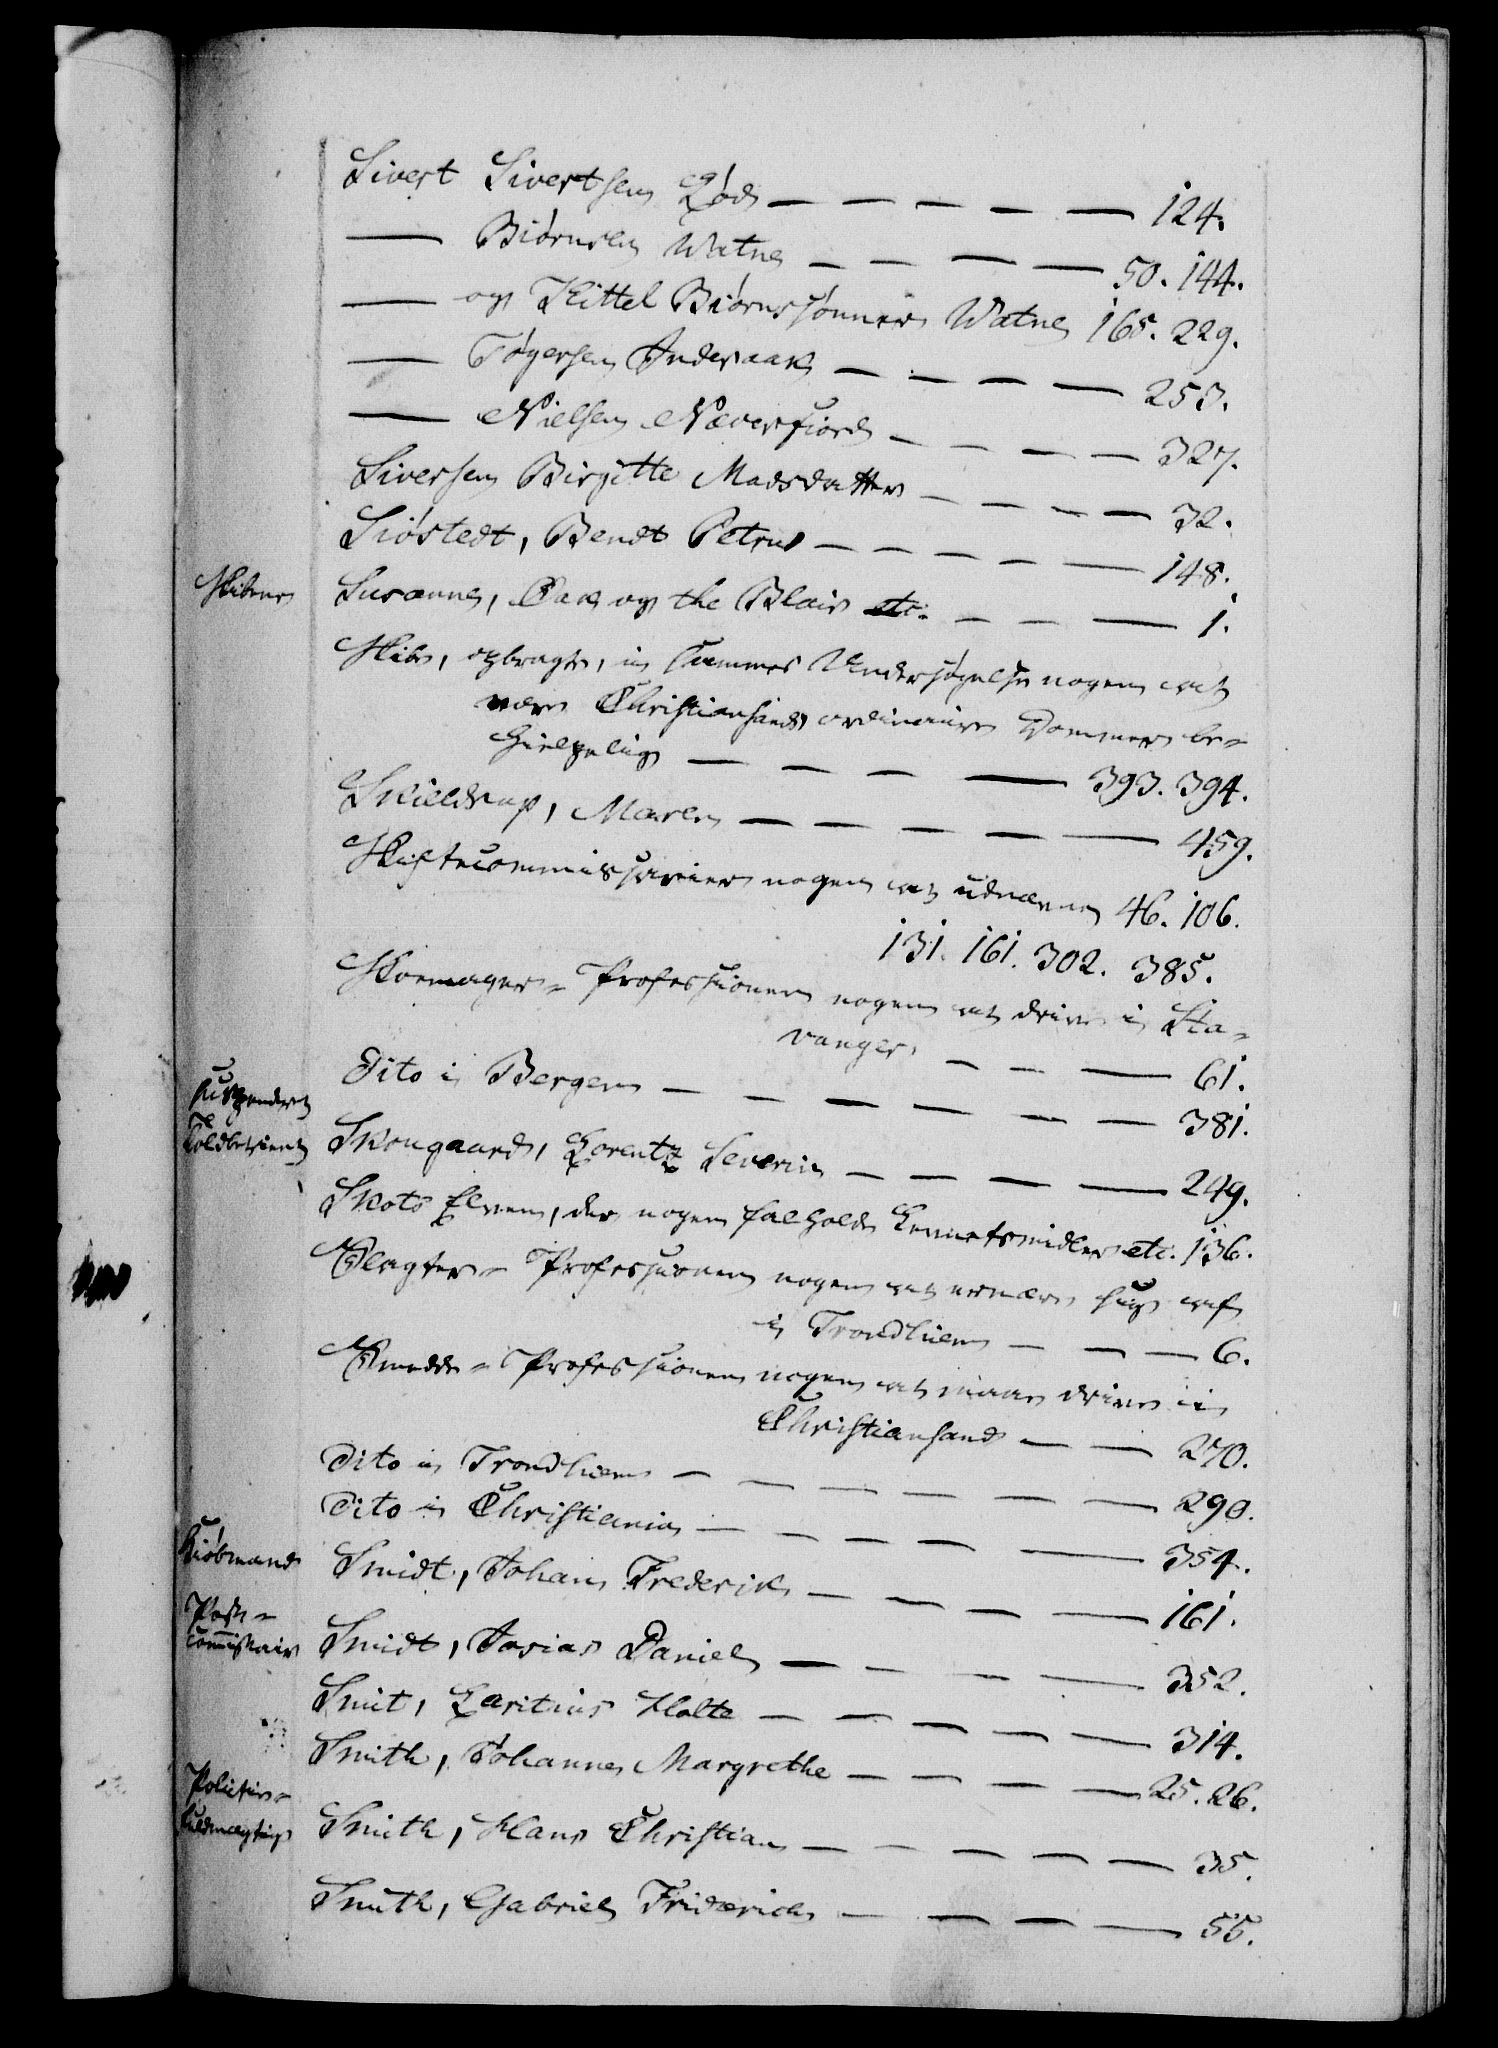 Sivert Sivertsen Løds — — — — — 124.
— Biørnsen Watne — — — — 50. 144.
— og Kittel Biørnssønner Watne 165. 229.
— Tøgersen Indersaak — — — — 253.
— Nielsen Næversfiord — — — — 327.
Siversen Birgitte Madsdatter — — — — 32.
Siøstedt, Bendt Petrus — — — — — 148.
Skibene Susanne, Care og the Blair etc. — — — 1.
Skibe, opbragte, i sammes Undersøgelse nogen at
være Christiansands ordinaire Dommer be-
hielpelig — — — — 393. 394.
Skielderup, Maren — — — — — 459.
Skiftecommissarier nogen at udnævne 46. 106.
131. 161. 302. 385.
Skomager-Professionen nogen at drive i Sta-
vanger, — — — 61.
Dito i Bergen — — — — — — — 381.
suspenderet
Toldbetient Skougaard, Lorentz Severin — — — — 249.
Skots Elven, der nogen falholde Levnetsmidler etc. 136.
Slagter-Professionen nogen at ernære sig af
i Trondhiem — — — 6.
Smedde-Professionen nogen at maae drive i
Christiansand — — 270.
Dito i Trondhiem — — — — — — — 290.
Dito i Christiania — — — — — — 354.
Kiøbmand Smidt, Johan Frederik — — — — — 161.
Post-
commissair Smidt, Josias Daniel — — — — 352.
Smit, Laritius Holte — — — — — 314.
Smith, Johanne Margrethe — — — — 25. 26.
Politie-
fuldmægtig Smith, Hans Christian — — — — — 35.
Smith, Gabriel Friderich — — — — 55.